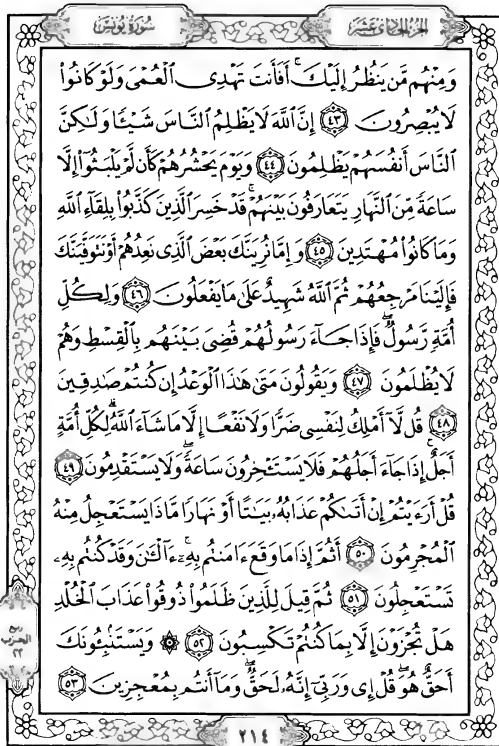 سُورَةُ يُونُسَ
الجُزْءُ الحَادِي عَشَرَ
وَمِنْهُم مَّن يَنظُرُ إِلَيْكَ ۚ أَفَأَنتَ تَهْدِى ٱلْعُمْىَ وَلَوْ كَانُوا۟
لَا يُبْصِرُونَ ٤٣ إِنَّ ٱللَّهَ لَا يَظْلِمُ ٱلنَّاسَ شَيْـًٔا وَلَـٰكِنَّ
ٱلنَّاسَ أَنفُسَهُمْ يَظْلِمُونَ ٤٤ وَيَوْمَ يَحْشُرُهُمْ كَأَن لَّمْ يَلْبَثُوٓا۟ إِلَّا
سَاعَةً مِّنَ ٱلنَّهَارِ يَتَعَارَفُونَ بَيْنَهُمْ ۚ قَدْ خَسِرَ ٱلَّذِينَ كَذَّبُوا۟ بِلِقَآءِ ٱللَّهِ
وَمَا كَانُوا۟ مُهْتَدِينَ ٤٥ وَإِمَّا نُرِيَنَّكَ بَعْضَ ٱلَّذِى نَعِدُهُمْ أَوْ نَتَوَفَّيَنَّكَ
فَإِلَيْنَا مَرْجِعُهُمْ ثُمَّ ٱللَّهُ شَهِيدٌ عَلَىٰ مَا يَفْعَلُونَ ٤٦ وَلِكُلِّ
أُمَّةٍ رَّسُولٌ ۖ فَإِذَا جَآءَ رَسُولُهُمْ قُضِىَ بَيْنَهُم بِٱلْقِسْطِ وَهُمْ
لَا يُظْلَمُونَ ٤٧ وَيَقُولُونَ مَتَىٰ هَـٰذَا ٱلْوَعْدُ إِن كُنتُمْ صَـٰدِقِينَ
٤٨ قُل لَّآ أَمْلِكُ لِنَفْسِى ضَرًّا وَلَا نَفْعًا إِلَّا مَا شَآءَ ٱللَّهُ ۗ لِكُلِّ أُمَّةٍ
أَجَلٌ ۚ إِذَا جَآءَ أَجَلُهُمْ فَلَا يَسْتَـْٔخِرُونَ سَاعَةً ۖ وَلَا يَسْتَقْدِمُونَ ٤٩
قُلْ أَرَءَيْتُمْ إِنْ أَتَىٰكُمْ عَذَابُهُۥ بَيَـٰتًا أَوْ نَهَارًا مَّاذَا يَسْتَعْجِلُ مِنْهُ
ٱلْمُجْرِمُونَ ٥٠ أَثُمَّ إِذَا مَا وَقَعَ ءَامَنتُم بِهِۦٓ ۚ ءَآلْـَٔـٰنَ وَقَدْ كُنتُم بِهِۦ
تَسْتَعْجِلُونَ ٥١ ثُمَّ قِيلَ لِلَّذِينَ ظَلَمُوا۟ ذُوقُوا۟ عَذَابَ ٱلْخُلْدِ
هَلْ تُجْزَوْنَ إِلَّا بِمَا كُنتُمْ تَكْسِبُونَ ٥٢ ۞ وَيَسْتَنۢبِـُٔونَكَ
أَحَقٌّ هُوَ ۖ قُلْ إِى وَرَبِّىٓ إِنَّهُۥ لَحَقٌّ ۖ وَمَآ أَنتُم بِمُعْجِزِينَ ٥٣
ربع
الحزب
٢٢
٢١٤